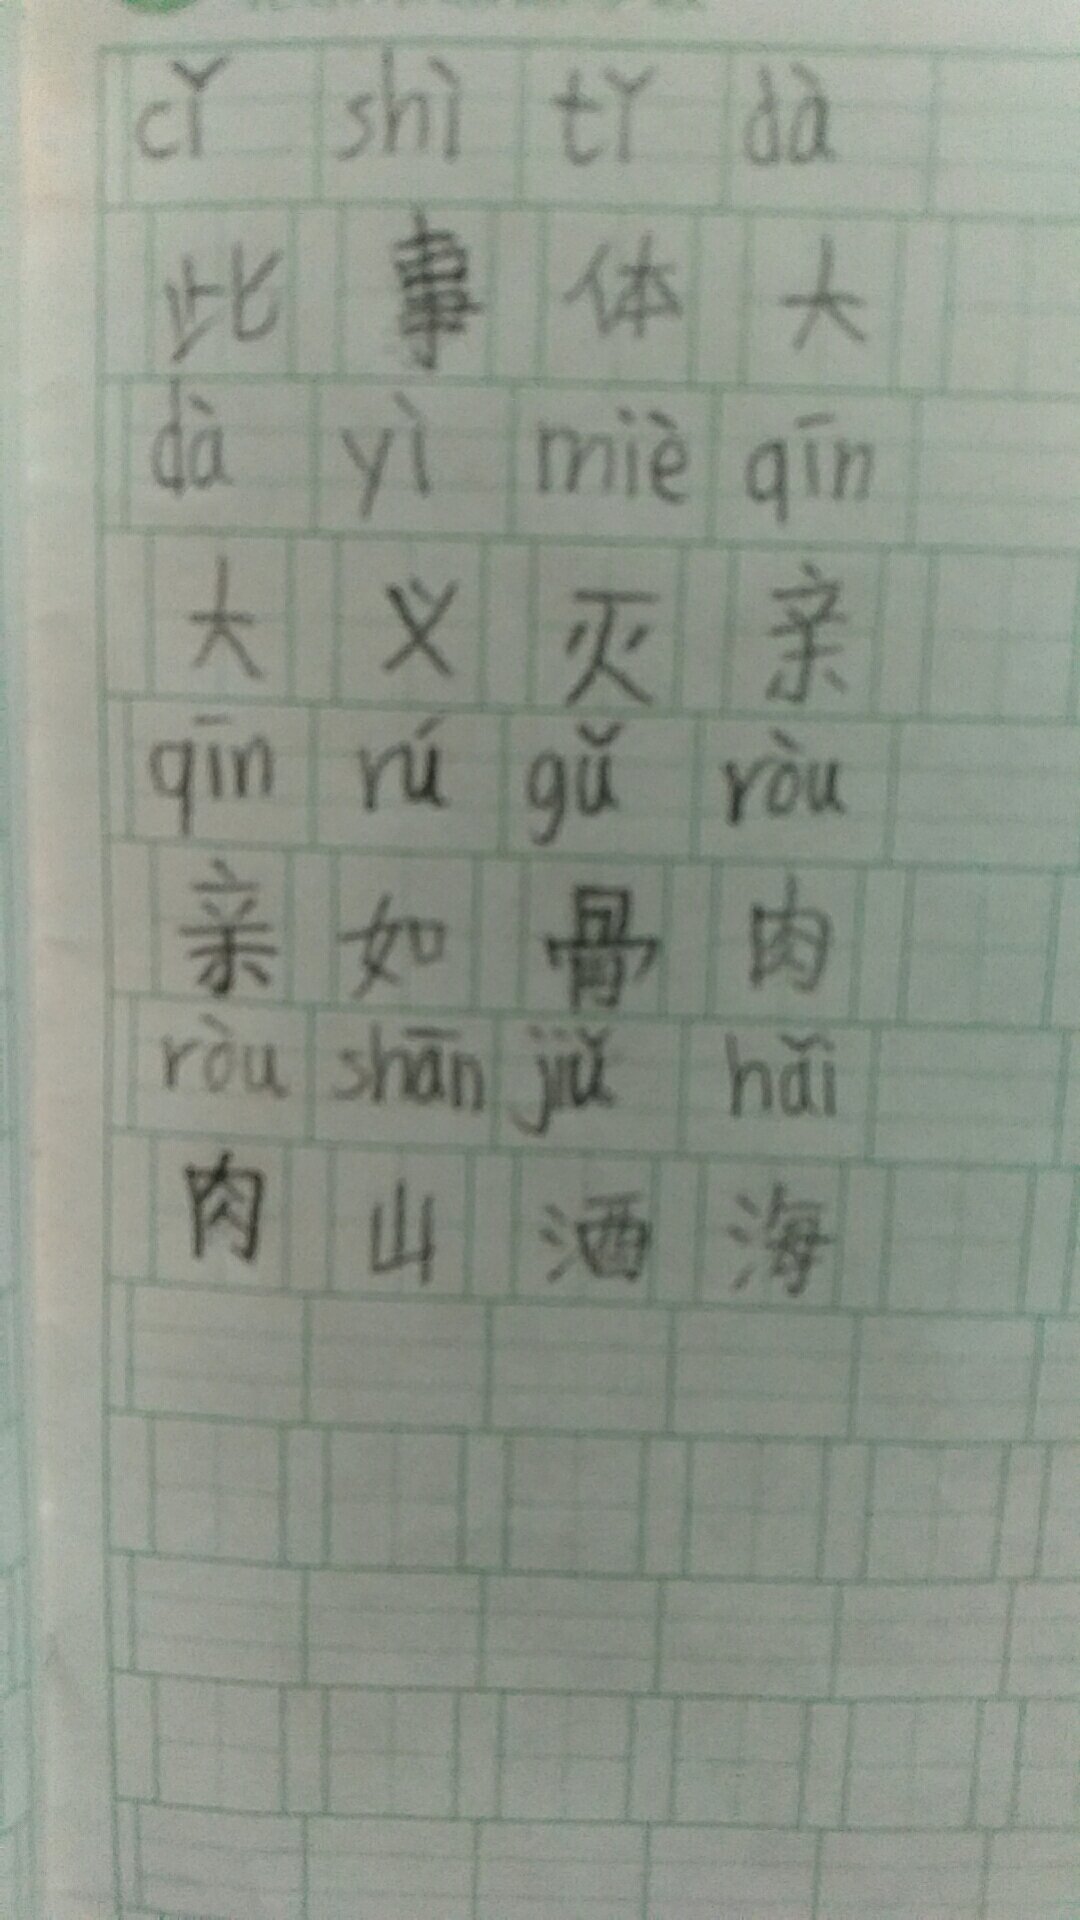 cǐ shì tǐ dà
此 事 体 大
dà yì miè qīn
大 义 灭 亲
qīn rú gǔ ròu
亲 如 骨 肉
ròu shān jiǔ hǎi
肉 山 酒 海